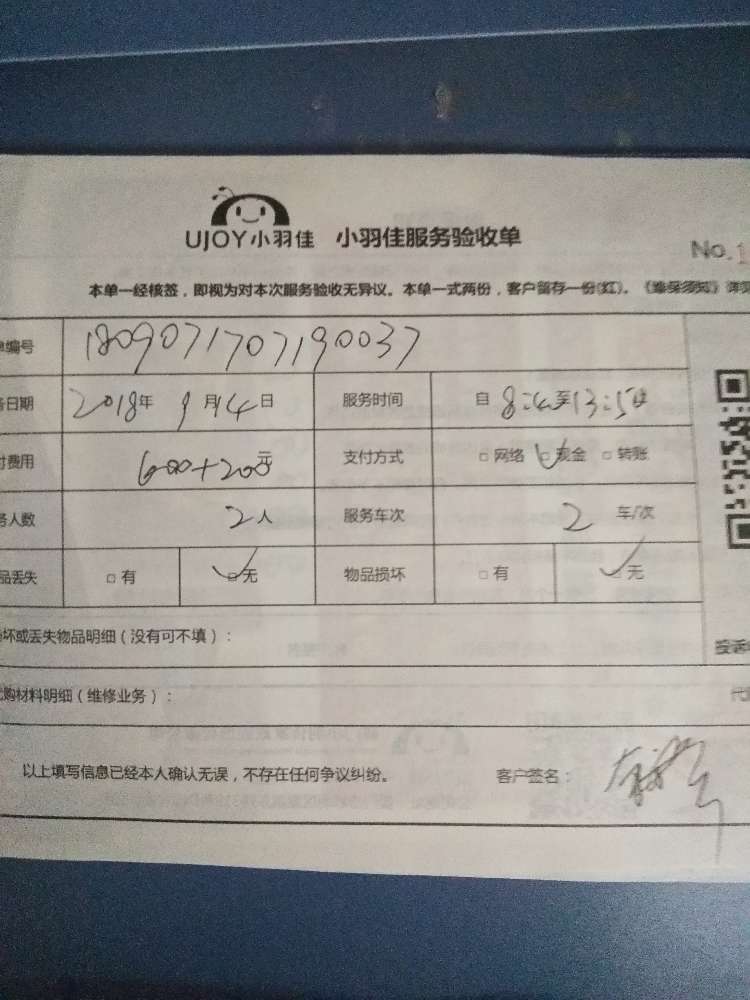 UJOY小羽佳 小羽佳服务验收单
No.1
本单一经核签，即视为对本次服务验收无异议。本单一式两份，客户留存一份(红)。
单编号 1809071707190037
务日期 2018年 9月14日 服务时间 自 8: 至13:50
付费用 600+200元 支付方式 □网络 □现金 □转账
务人数 2人 服务车次 2 车/次
品丢失 □有 □无 物品损坏 □有 □无
损坏或丢失物品明细（没有可不填）：
代购材料明细（维修业务）：
以上填写信息已经本人确认无误，不存在任何争议纠纷。 客户签名：